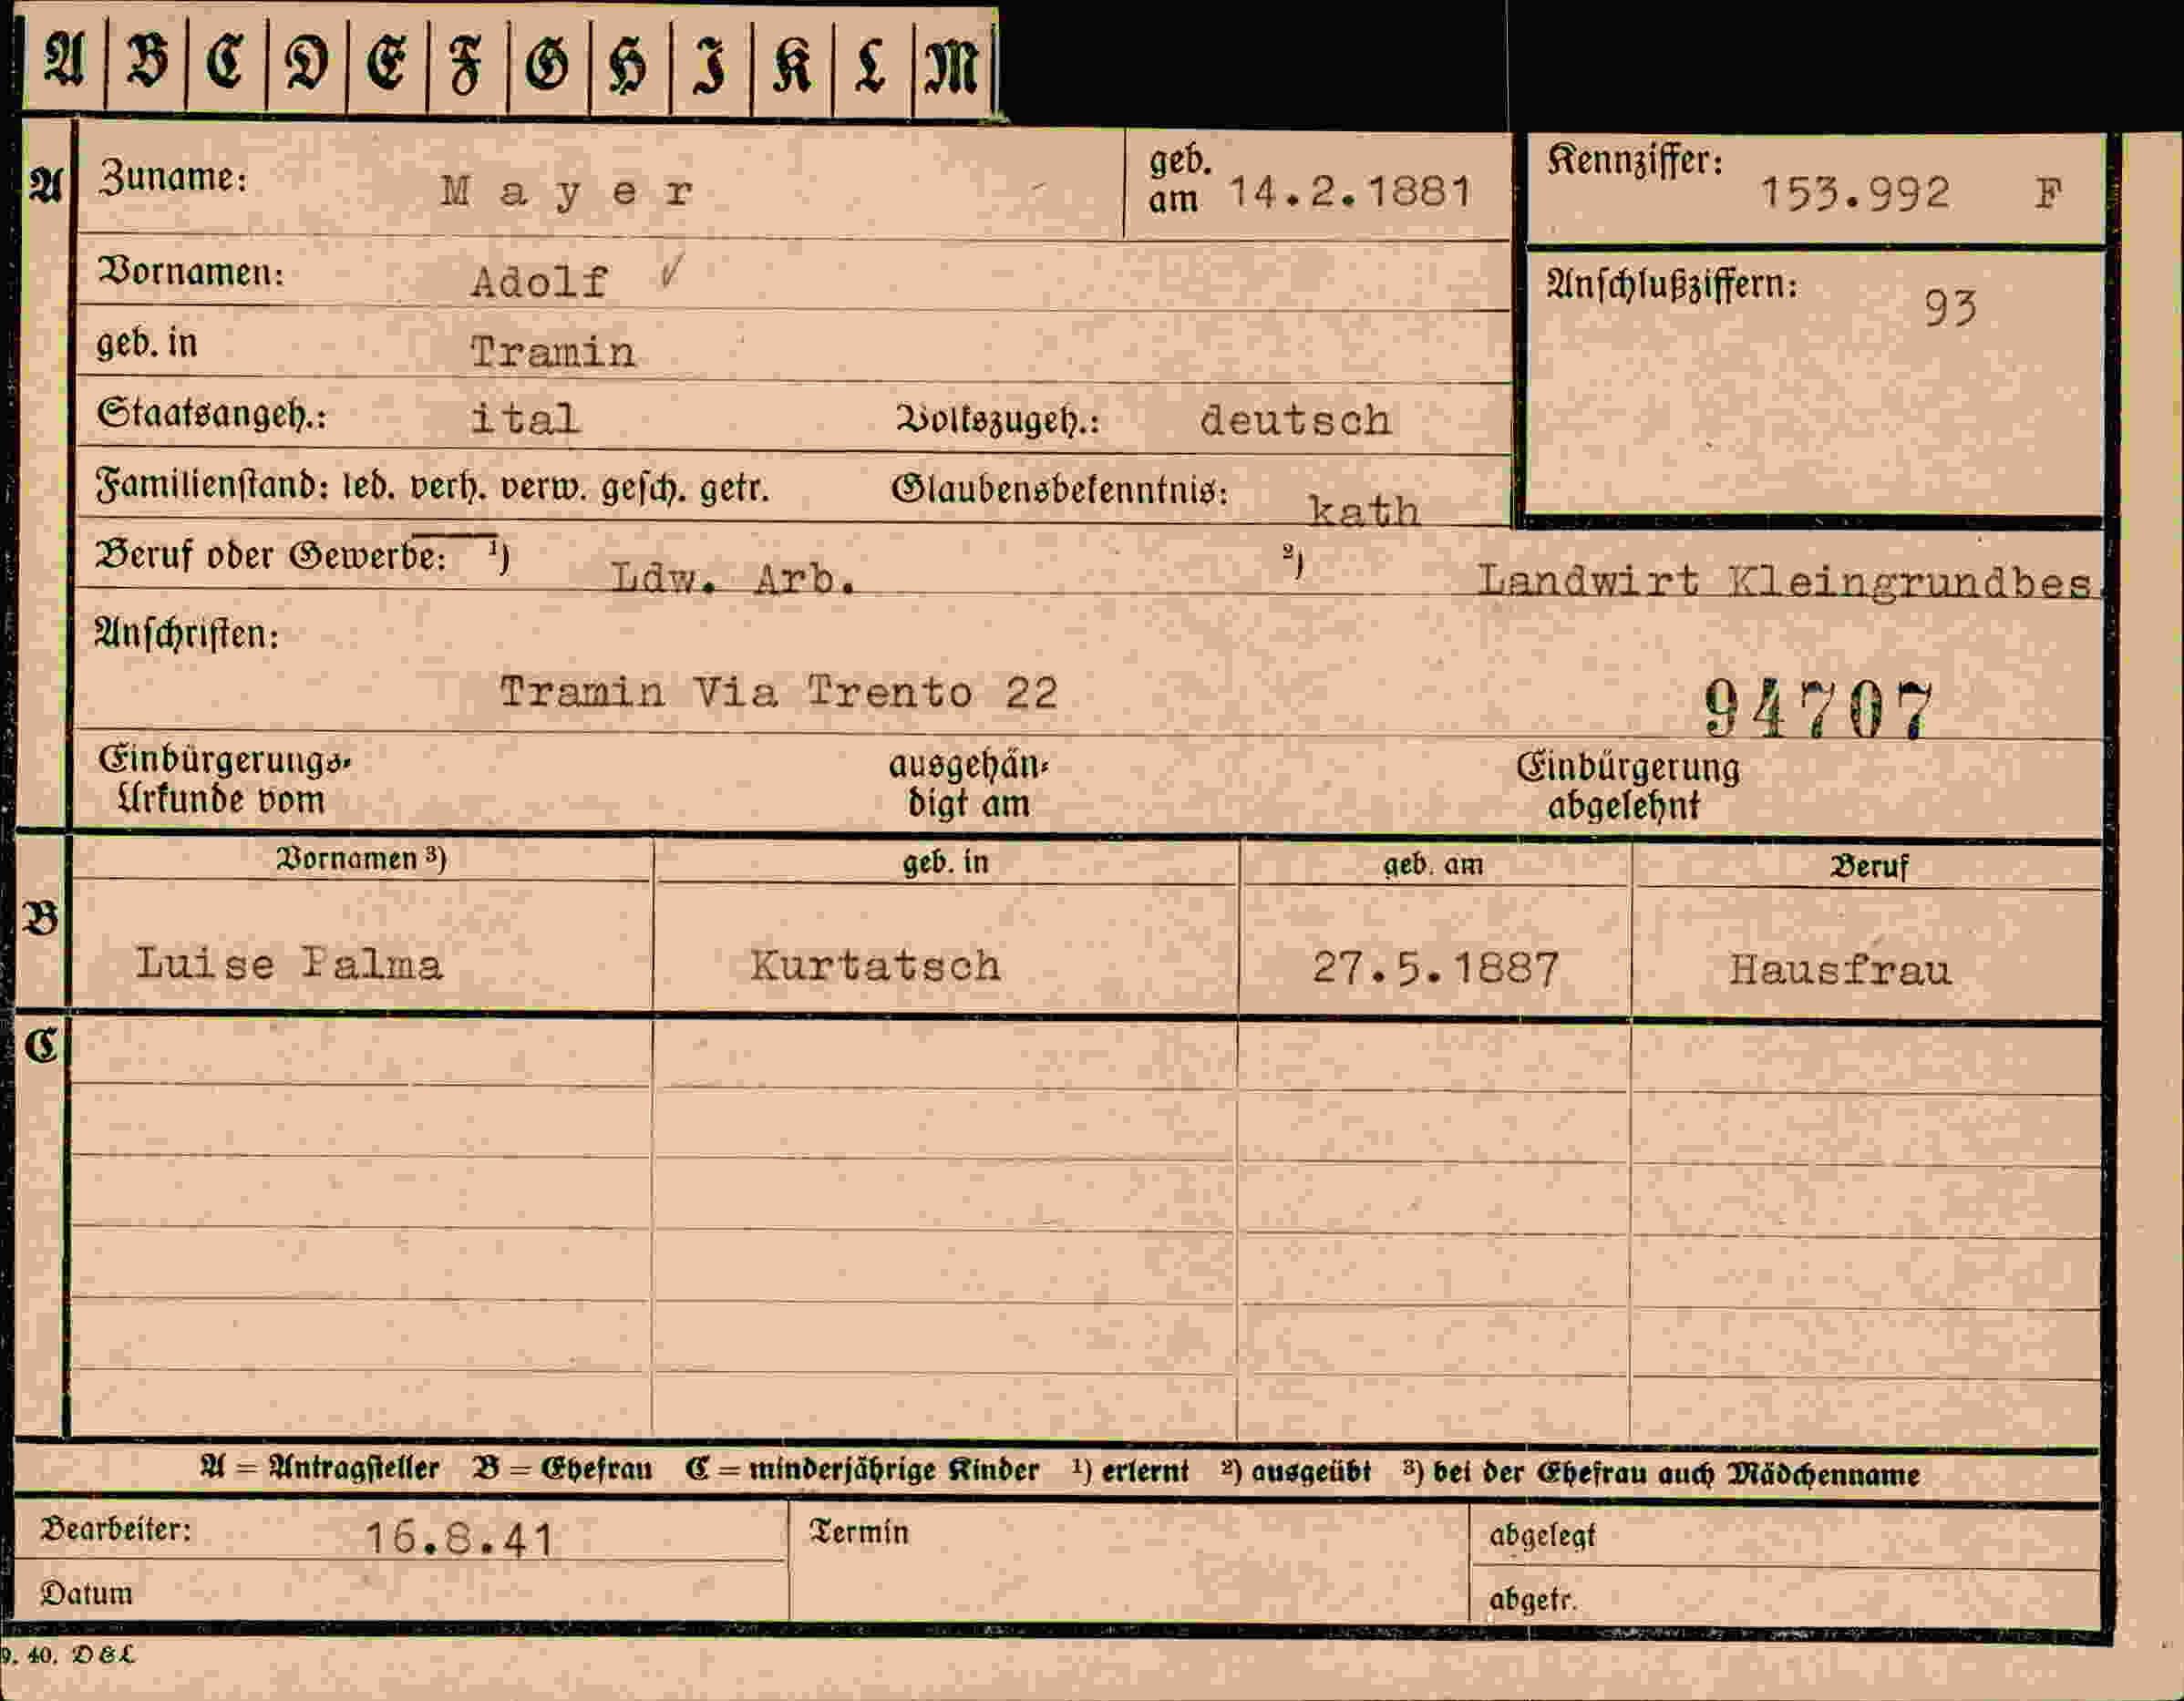 A B C D E F G H I K L M
A Zuname: Mayer geb. am 14.2.1881 Kennziffer: 153.992 F
Vornamen: Adolf ✓ Anschlußziffern: 93
geb. in Tramin
Staatsangeh.: ital Volkszugeh.: deutsch
Familienstand: led. verh. verw. gesch. getr. Glaubensbekenntnis: kath
Beruf oder Gewerbe: ¹) Ldw. Arb. ²) Landwirt Kleingrundbes.
Anschriften:
Tramin Via Trento 22 94707
Einbürgerungs-Urkunde vom ausgehändigt am Einbürgerung abgelehnt
Vornamen ³) geb. in geb. am Beruf
B Luise Palma Kurtatsch 27.5.1887 Hausfrau
C
A = Antragsteller B = Ehefrau C = minderjährige Kinder ¹) erlernt ²) ausgeübt ³) bei der Ehefrau auch Mädchenname
Bearbeiter: 16.8.41 Termin abgelegt
Datum abgetr.
9. 40. D&L